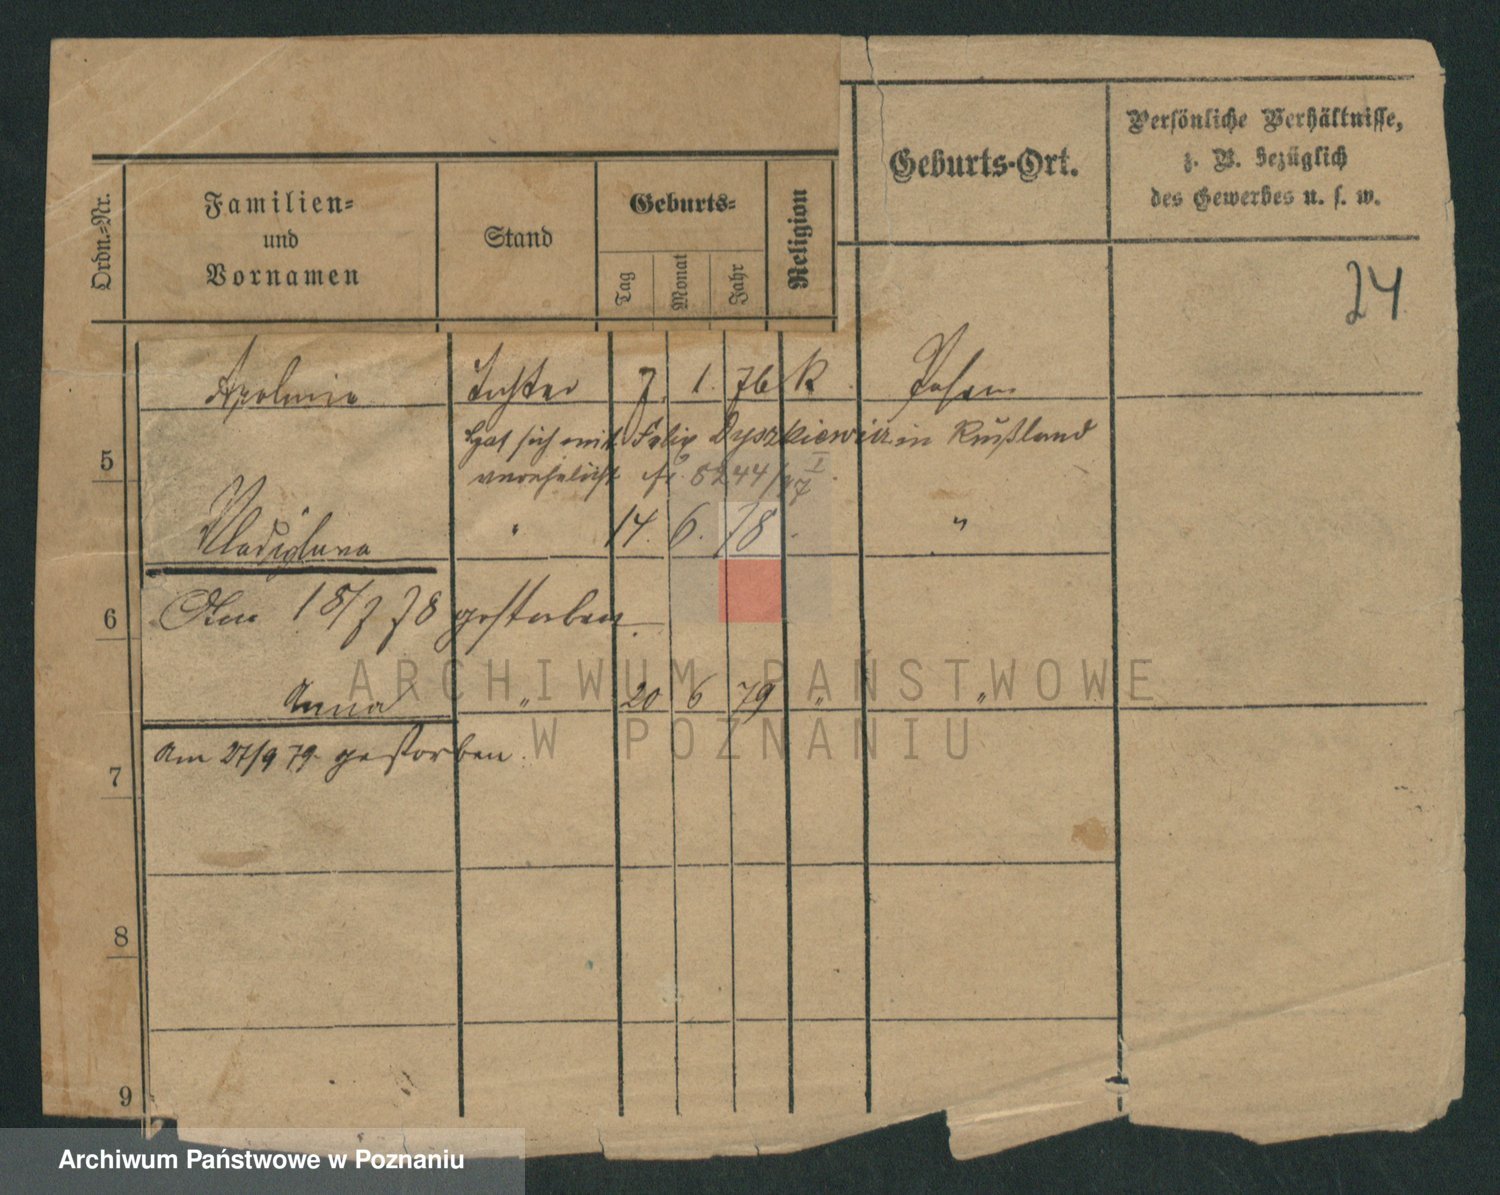 Ordn.-Nr.
Familien-
und
Vornamen
Stand
Geburts-
Tag
Monat
Jahr
Religion
Geburts-Ort.
Persönliche Verhältnisse,
z. B. bezüglich
des Gewerbes u. s. w.
24
Apolonia Tochter 7. 1. 76 K. Posen
hat sich mit Felix Dyszkiewicz in Rußland
5
verehelicht 5244/ I
Wladislava " 14. 6. 78. "
6
Am 18/7 78 gestorben.
Anna " 20 6 79 " "
Am 27/9 79. gestorben.
7
8
9
ARCHIWUM PAŃSTWOWE
W POZNANIU
Archiwum Państwowe w Poznaniu